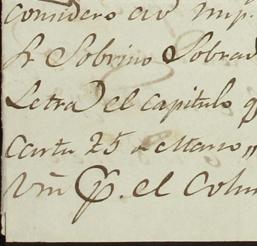 considero
Sr Sobrino Sobrad
Letra el capitulo q
Carta 25 de Marzo
Vm p. el Colum